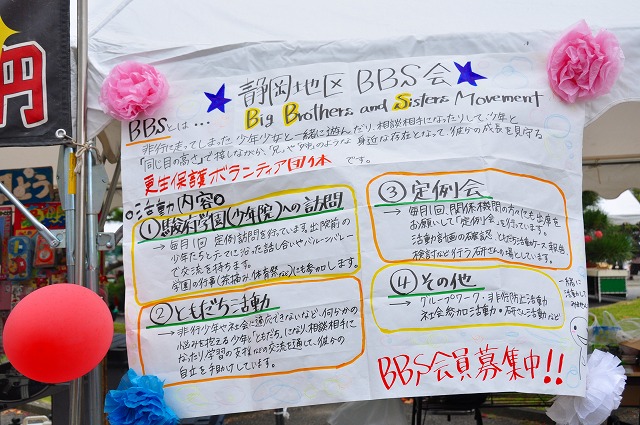 円
静岡地区 BBS会
Big Brothers and Sisters Movement
BBSとは…
非行に走ってしまった少年少女と一緒に遊んだり、相談相手になったりして、少年と
「同じ目の高さ」で接しながら、「兄」や「姉」のような身近な存在となって彼らの成長を見守る
更生保護ボランティア団体 です。
○活動内容○
①駿府学園(少年院)への訪問
→毎月1回 定例訪問を行っています。出院前の
少年たちとテーマに沿った話し合いやバレーボール
で交流を持ちます。
学園の行事(茶摘み、体育祭など)にも参加します。
②ともだち活動
→非行少年や社会に適応できないなど、何らかの
悩みを抱える少年と「ともだち」になり、相談相手に
なったり学習の支援などの交流を通して、彼らの
自立を手助けしています。
③定例会
→毎月1回、関係機関の方々にも出席を
お願いして「定例会」を行っています。
活動計画の確認、ともだち活動ケース報告、
検討などを行う研さんの場としています。
④その他
→グループワーク・非行防止活動
社会参加活動・研さん活動など
一緒に
活動して
みませんか
BBS会員募集中!!